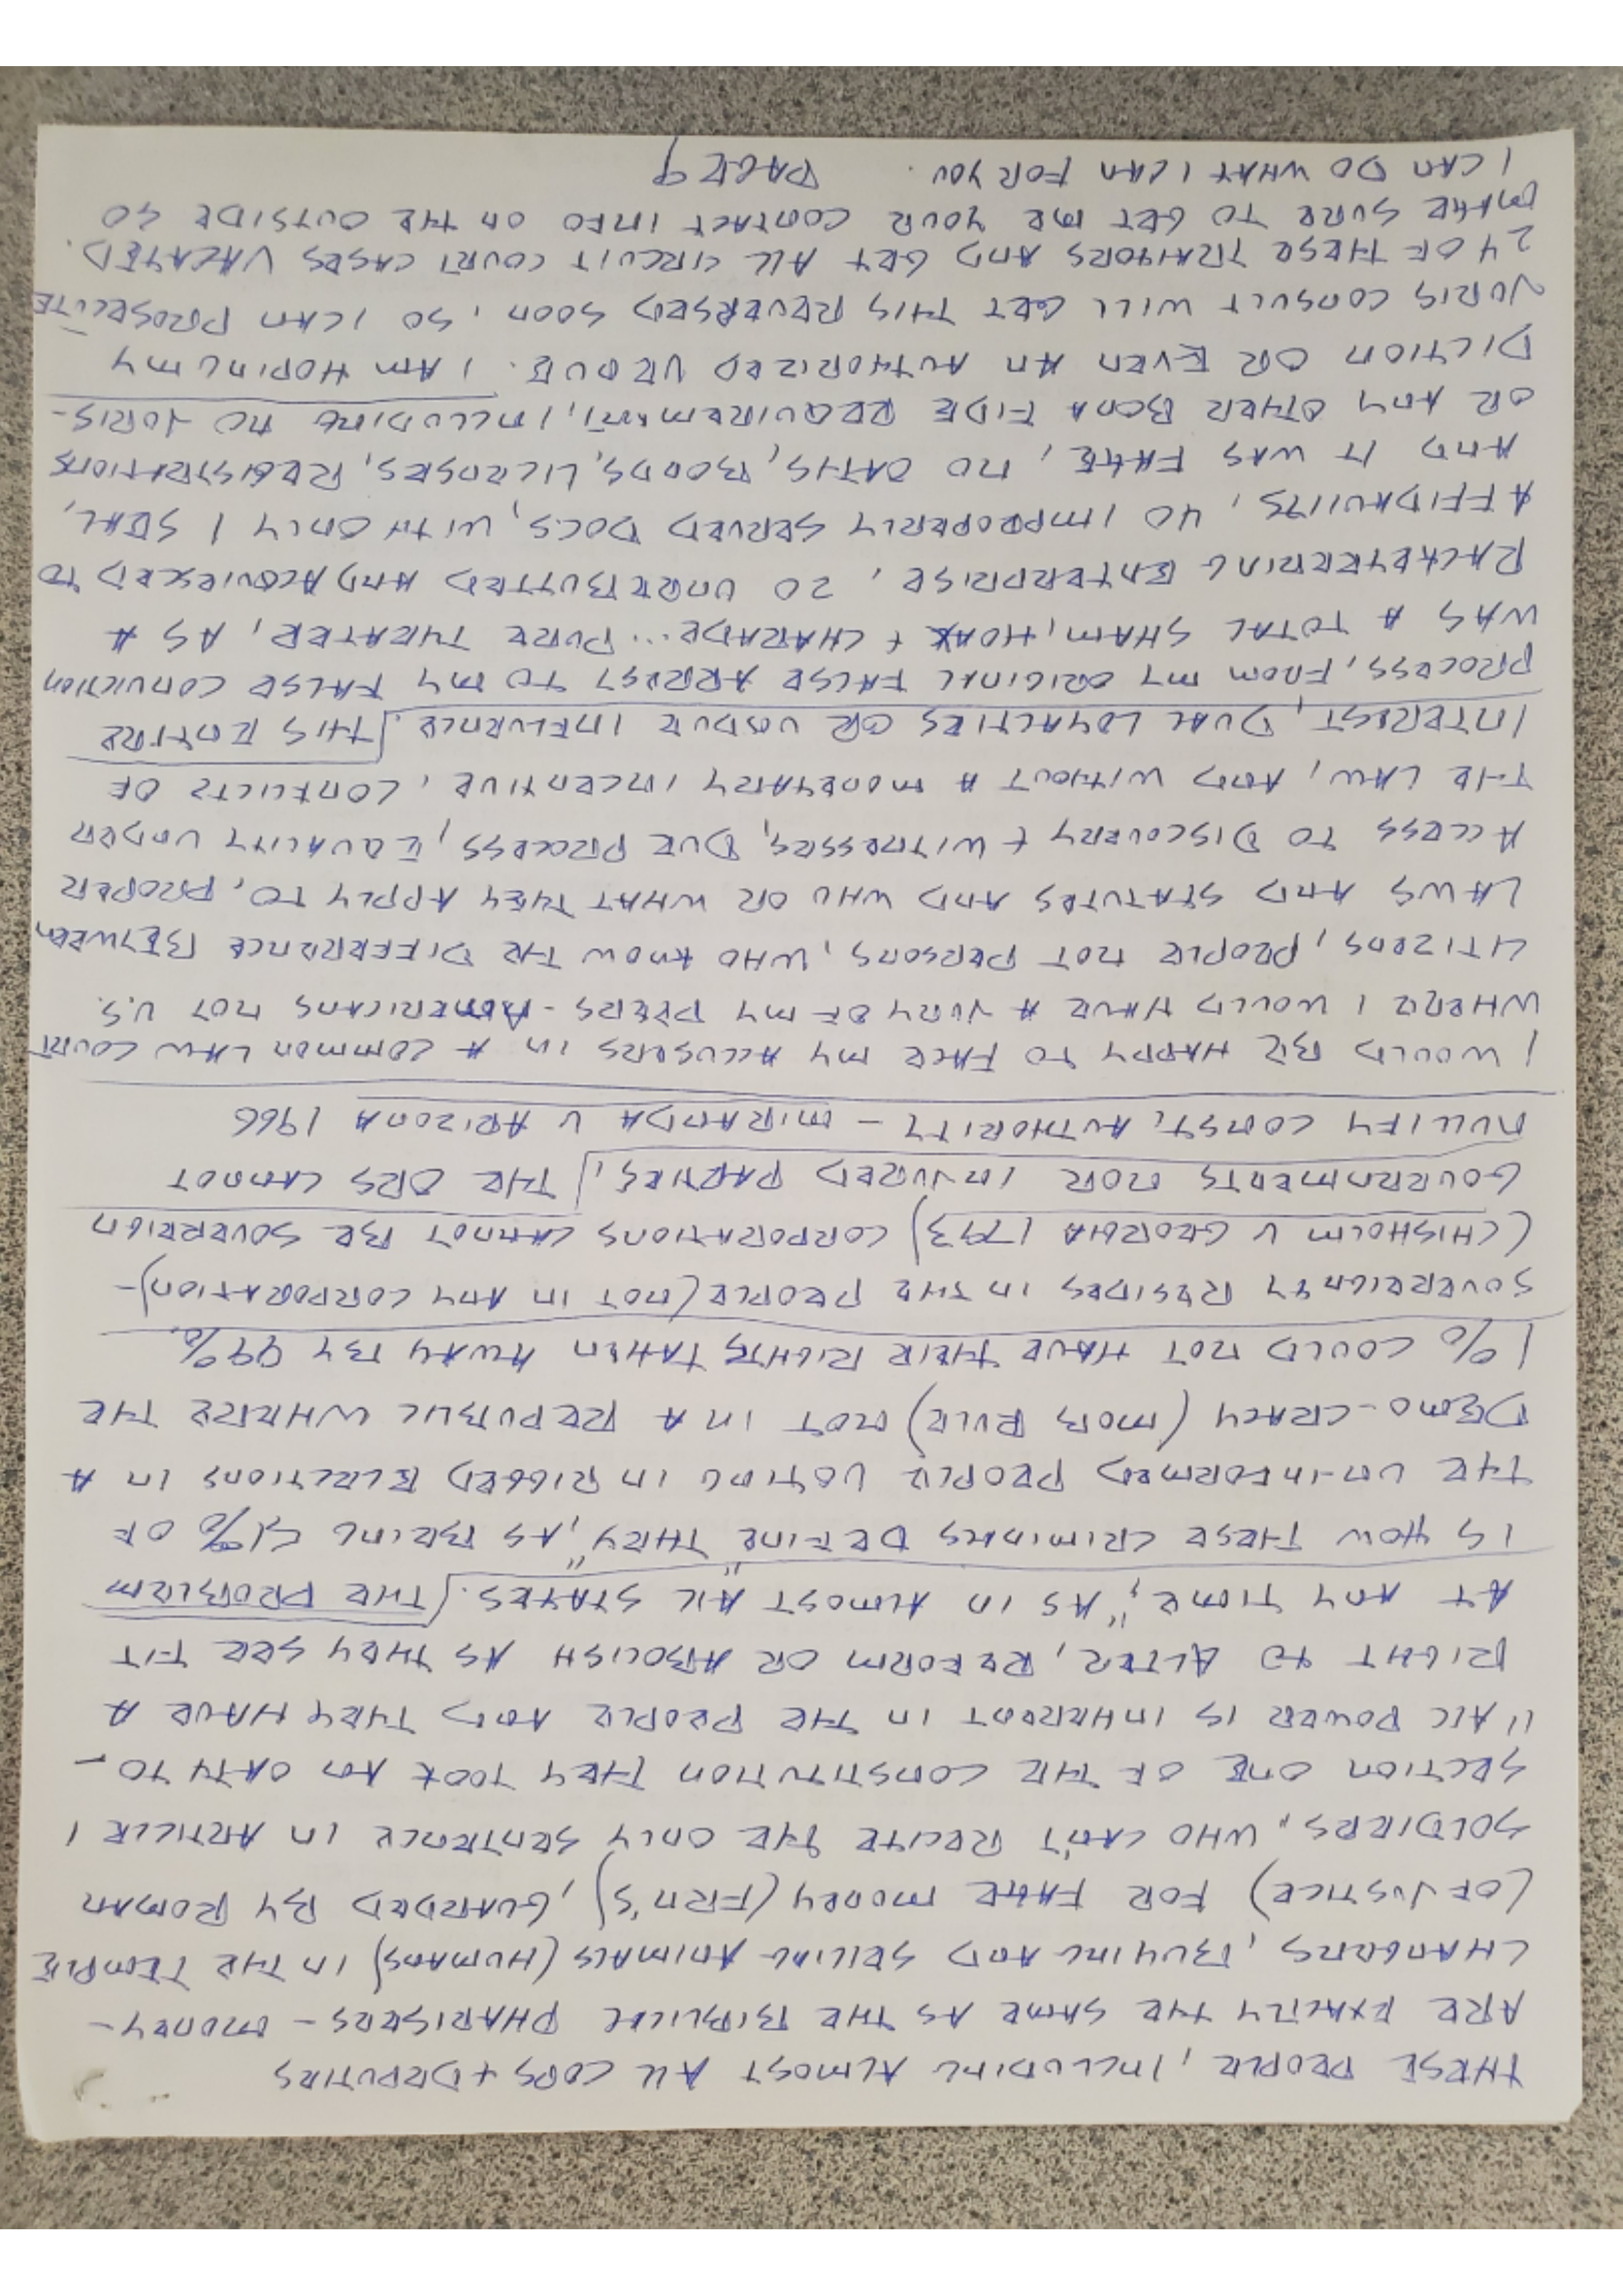 THESE PEOPLE, INCLUDING ALMOST ALL COPS + DEPUTIES
ARE EXACTLY THE SAME AS THE BIBLICAL PHARISEES - MONEY-
CHANGERS, BUYING AND SELLING ANIMALS (HUMANS) IN THE TEMPLE
(OF JUSTICE) FOR FAKE MONEY (FRN'S), GUARDED BY ROMAN
SOLDIERS, WHO CAN'T RECITE THE ONLY SENTENCE IN ARTICLE 1
SECTION ONE OF THE CONSTITUTION THEY TOOK AN OATH TO -
"ALL POWER IS INHERENT IN THE PEOPLE AND THEY HAVE A
RIGHT TO ALTER, REFORM OR ABOLISH AS THEY SEE FIT
AT ANY TIME", AS IN ALMOST ALL STATES. THE PROBLEM
IS HOW THESE CRIMINALS DEFINE "THEY", AS BEING 51% OF
THE UN-INFORMED PEOPLE VOTING IN RIGGED ELECTIONS IN A
DEMO-CRACY (MOB RULE) NOT IN A REPUBLIC WHERE THE
1% COULD NOT HAVE THEIR RIGHTS TAKEN AWAY BY 99%.
SOVEREIGNTY RESIDES IN THE PEOPLE (NOT IN ANY CORPORATION)-
(CHISHOLM V GEORGIA 1793) CORPORATIONS CANNOT BE SOVEREIGN
GOVERNMENTS NOR INJURED PARTIES, THE ORS CANNOT
NULLIFY CONST, AUTHORITY - MIRANDA V ARIZONA 1966
I WOULD BE HAPPY TO FACE MY ACCUSERS IN A COMMON LAW COURT
WHERE I WOULD HAVE A JURY OF MY PEERS - AMERICANS NOT U.S.
CITIZENS, PEOPLE NOT PERSONS, WHO KNOW THE DIFFERENCE BETWEEN
LAWS AND STATUTES AND WHO OR WHAT THEY APPLY TO, PROPER
ACCESS TO DISCOVERY + WITNESSES, DUE PROCESS, EQUALITY UNDER
THE LAW, AND WITHOUT A MONETARY INCENTIVE, CONFLICTS OF
INTEREST, DUAL LOYALTIES OR UNDUE INFLUENCE. THIS ENTIRE
PROCESS, FROM MY ORIGINAL FALSE ARREST TO MY FALSE CONVICTION
WAS A TOTAL SHAM, HOAX + CHARADE... PURE THEATER, AS A
RACKETEERING ENTERPRISE, 20 UNREBUTTED AND ACQUIESCED TO
AFFIDAVITS, 40 IMPROPERLY SERVED DOCS, WITH ONLY 1 SEAL,
AND IT WAS FAKE, NO OATHS, BONDS, LICENSES, REGISTRATIONS
OR ANY OTHER BONA FIDE REQUIREMENT, INCLUDING NO JURIS-
DICTION OR EVEN AN AUTHORIZED VENUE. I AM HOPING MY
JURIS CONSULT WILL GET THIS REVERSED SOON, SO I CAN PROSECUTE
24 OF THESE TRAITORS AND GET ALL CIRCUIT COURT CASES VACATED.
MAKE SURE TO GET ME YOUR CONTACT INFO ON THE OUTSIDE SO
I CAN DO WHAT I CAN FOR YOU. PAGE 9